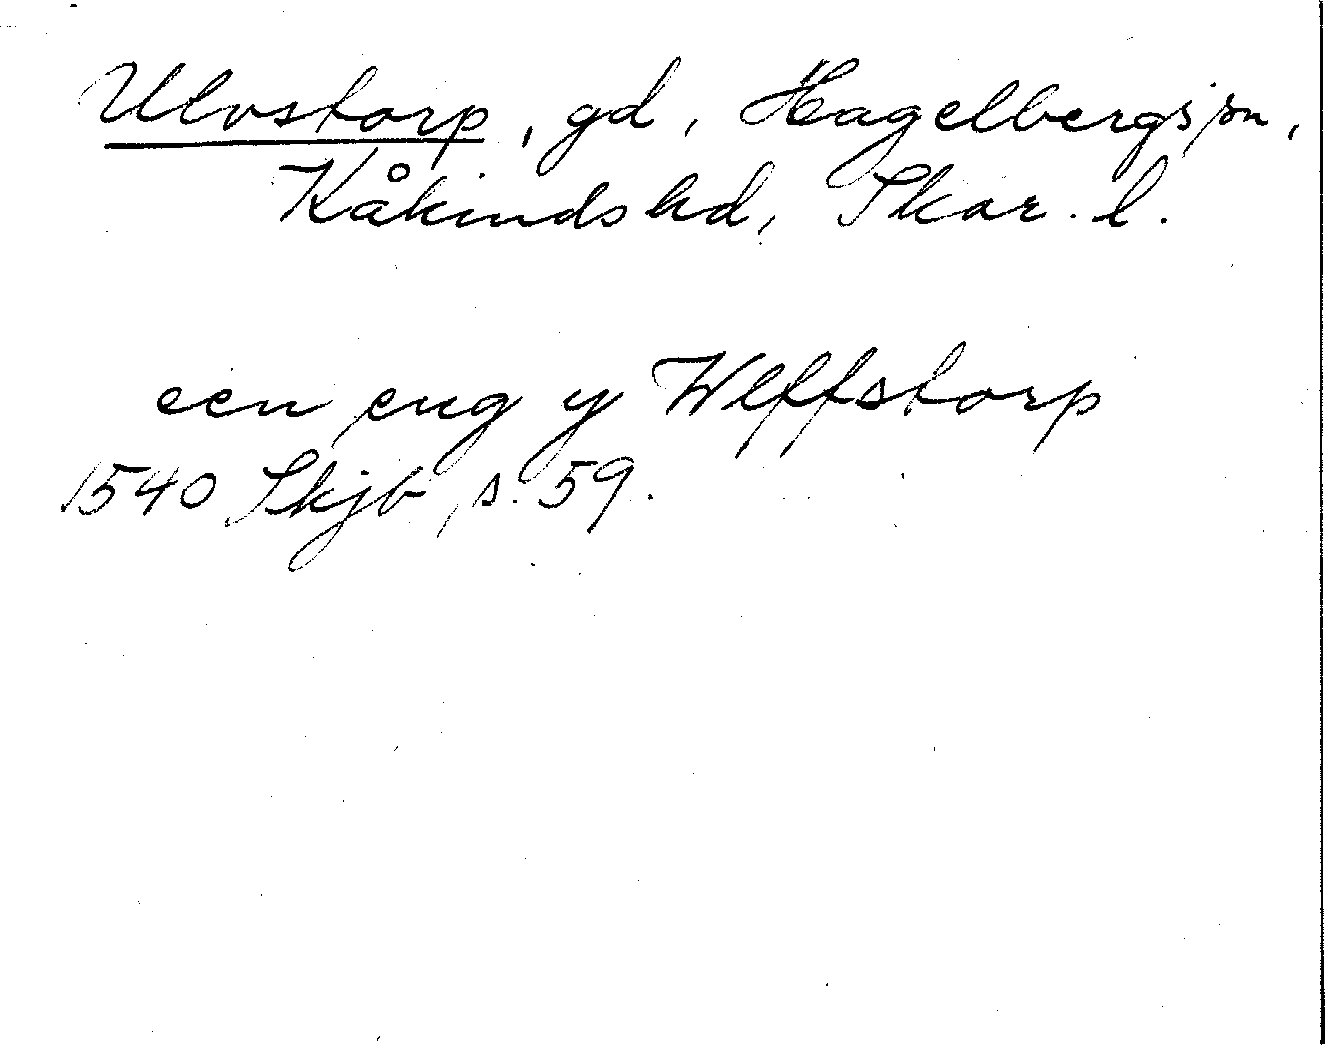 Ulvstorp, gd, Hagelbergs sn,
Kåkinds hd, Skar. l.
een eng y Wlffstorp
1540 Skjb, s. 59.